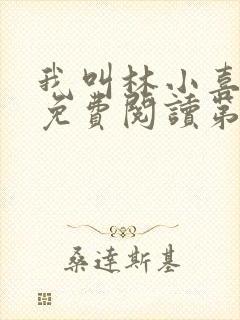 我叫林小喜
免費閱讀第
桑達斯基